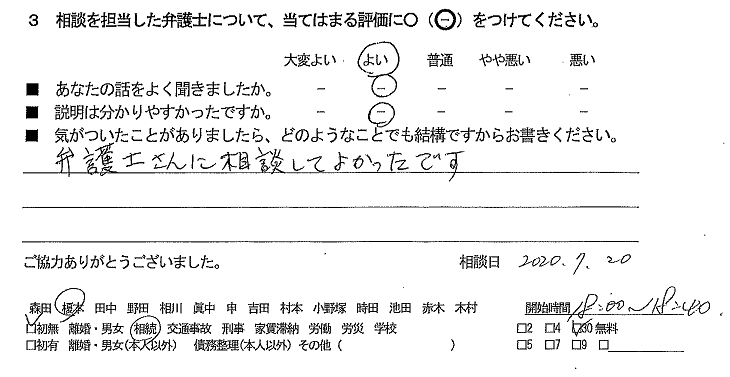 3 相談を担当した弁護士について、当てはまる評価に○（㊀）をつけてください。
大変よい よい 普通 やや悪い 悪い
■ あなたの話をよく聞きましたか。 － － － － －
■ 説明は分かりやすかったですか。 － － － － －
■ 気がついたことがありましたら、どのようなことでも結構ですからお書きください。
弁護士さんに相談してよかったです
ご協力ありがとうございました。 相談日 2020.7.20
森田 榎本 田中 野田 相川 眞中 申 吉田 村本 小野塚 時田 池田 赤木 木村 開始時間 18:00～18:40
□初無 離婚・男女 相続 交通事故 刑事 家賃滞納 労働 労災 学校 □2 □4 □30 無料
□初有 離婚・男女(本人以外) 債務整理(本人以外) その他 ( ) □5 □7 □9 □